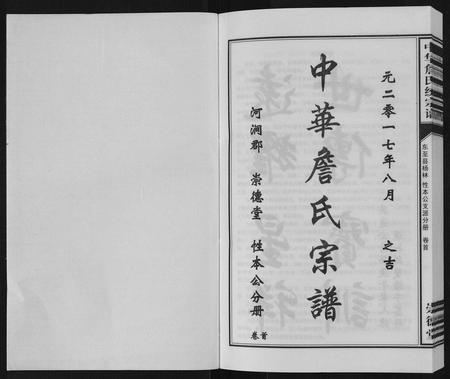 元二零一七年八月 之吉
中華詹氏宗譜
河澗郡 崇德堂 性本公分册
卷首
中华詹氏统宗谱
东至县杨林 性本公支派分册 卷首
崇德堂